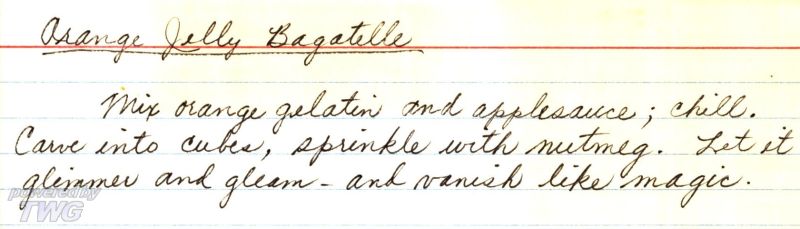 Orange Jelly Bagatelle
Mix orange gelatin and applesauce; chill.
Carve into cubes, sprinkle with nutmeg. Let it
glimmer and gleam - and vanish like magic.
powered by
TWG